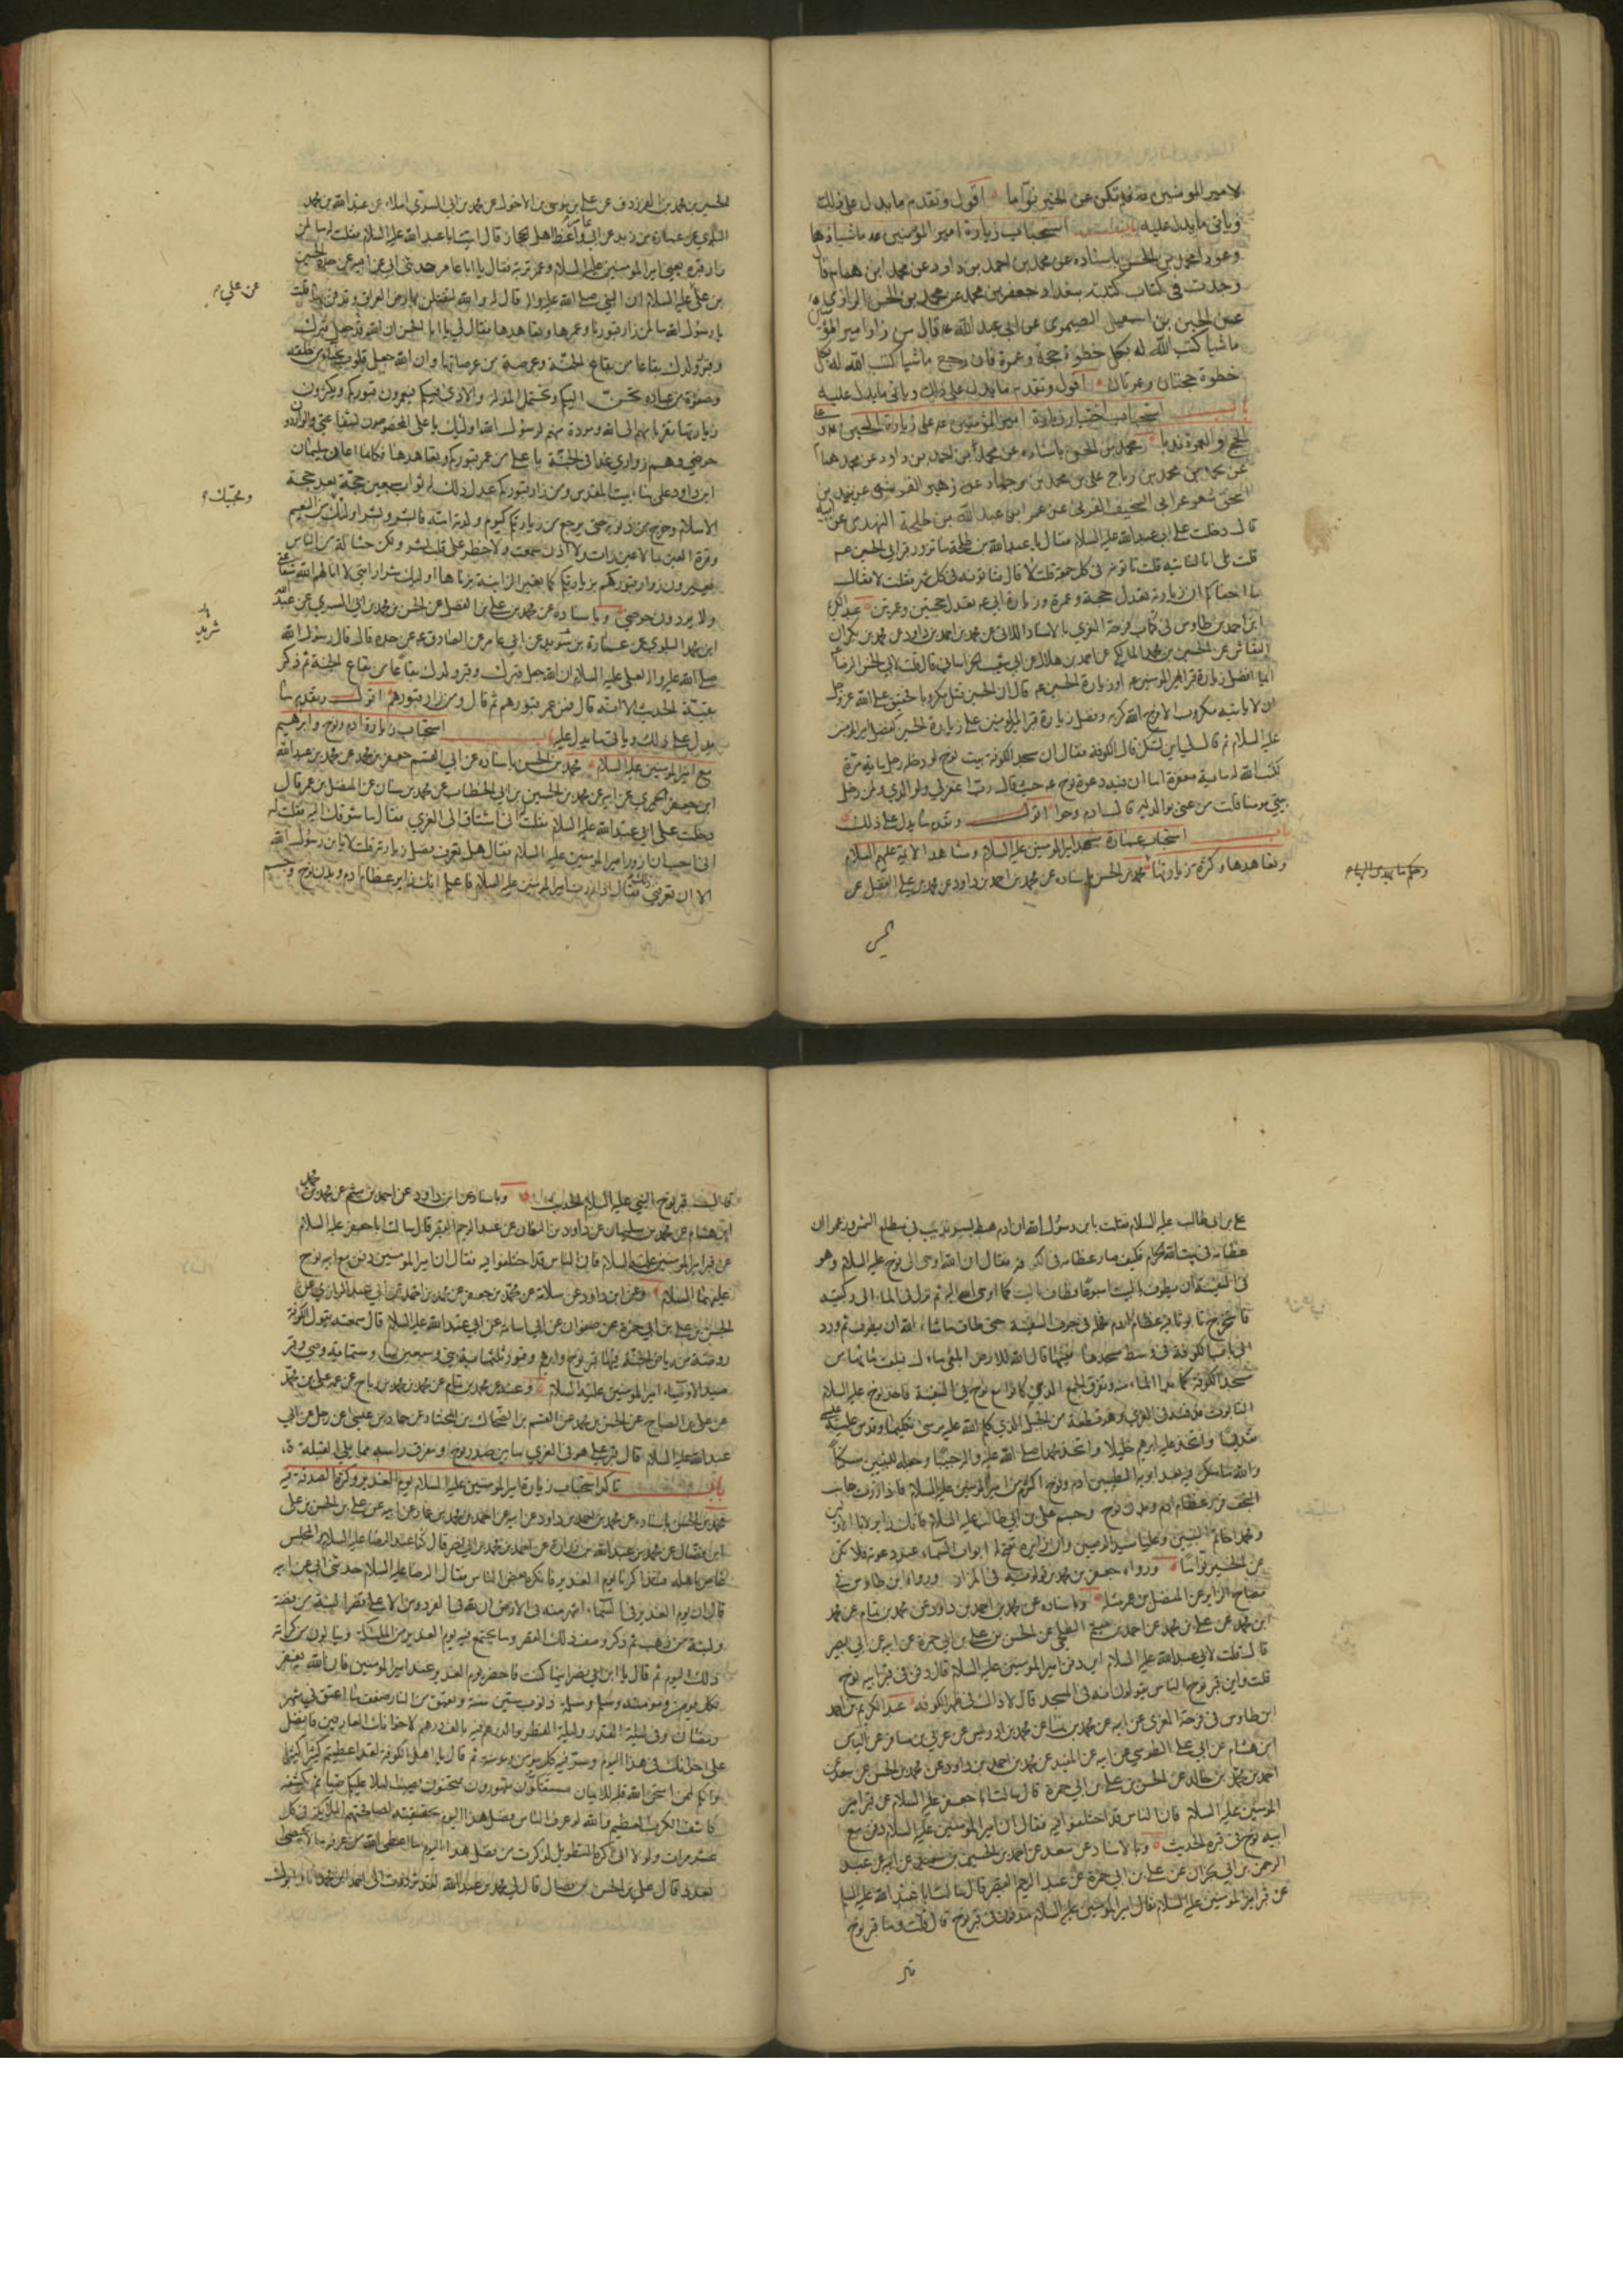 لامير المومنين عه فلا تكن عن الخير نوّاما اقول وتقدم ما يدل على ذلك
وياتى ما يدل عليه استحباب زيارة امير المؤمنين عه ماشيا ذهابا
وعودا محمد بن الحسن باسناده عن محمد بن احمد بن داود عن محمد ابن همام قال
وجدت فى كتاب كتبه ببغداد جعفر بن محمد عن محمد بن الحسن الرازى
عن الحسين بن اسمعيل الصيمرى عن ابى عبد الله عه قال من زار امير المؤمنين
ماشيا كتب الله له بكل خطوة حجة وعمرة فان رجع ماشيا كتب الله له بكل
خطوة حجتان وعمرتان اقول وتقدم ما يدل على ذلك وياتى ما يدل عليه
باب استحباب اختيار زيارة امير المؤمنين عه على زيارة الحسين عه وعلى
الحج والعمرة ندبا محمد بن الحسن باسناده عن محمد بن احمد بن داود عن محمد همام
عن محمد بن محمد بن رباح على بن محمد عن زهير القرشى عن يزيد بن
اسحق شعر عن ابى السخيف عن عمر ابن عبد الله بن طلحة النهدى عن ابيه
قال دخلت على ابى عبد الله عليه السلام فقال يا عبد الله بن طلحة ما تزور قبر ابى الحسين عه
قلت بلى انا لناتيه قلت تاتونه فى كل جمعة قلت لا قال فتاتونه فى كل شهر فقلت لا فقال
ما اجفاكم ان زيارته تعدل حجة وعمرة وزيارة ابى عه تعدل حجتين وعمرتين عبد الكريم
ابن احمد بن طاوس فى كتاب فرحة الغرى بالاسناد الاتى عن محمد بن احمد بن داود عن محمد بن بكران
النقاش عن الحسين بن محمد المالكى عن احمد بن هلال عن ابى شعيب الخراسانى قال قلت لابى الحسن الرضا
ايما افضل زيارة قبر امير المومنين عه او زيارة الحسين عه قال ان الحسين قتل مكروبا فحقيق على الله عز وجل
ان لا ياتيه مكروب الا فرج الله كربه وفضل زيارة قبر امير المومنين على زيارة الحسين كفضل امير المومنين
عليه السلام ثم قال لى اين تسكن قال الكوفة فقال ان مسجد الكوفة بيت نوح لو دخله رجل ماية مرة
لكتب الله له ماية مغفرة اما ان فيه دعوة نوح عه حيث قال رب اغفر لى ولوالدى ولمن دخل
بيتى مومنا قلت من عنى بوالديه قال ادم وحوا اقول وتقدم ما يدل على ذلك
باب استحباب عمارة مشهد امير المومنين عليه السلام ومشاهد الائمة عليهم السلام
وتعاهدها وكثرة زيارتها محمد بن الحسن باسناده عن محمد بن احمد بن داود عن محمد بن علي الفضل عن
الحسين
الحسين بن محمد بن الفرزدق عن على بن موسى بن الاحول عن محمد بن ابى السرى املاء عن عبد الله بن محمد
البلوى عن عمارة بن زيد عن ابى عامر واعظ اهل الحجاز قال اتيت ابا عبد الله عليه السلام فقلت له ما لمن
زار قبره يعنى امير المومنين عليه السلام وعمر تربته فقال يا ابا عامر حدثنى ابى عن ابيه عن جده الحسين
عن علي
بن على عليه السلام ان النبى صلى الله عليه واله قال له والله لتقتلن بارض العراق وتدفن بها قلت
يا رسول الله ما لمن زار قبورنا وعمرها وتعاهدها فقال لى يا ابا الحسن ان الله قد جعل قبرك
وقبر ولدك بقاعا من بقاع الجنة وعرصة من عرصاتها وان الله جعل قلوب نجباء من خلقه
وصفوة من عباده تحن اليكم وتحتمل المذلة والاذى فيكم فيعمرون قبوركم ويكثرون
زيارتها تقربا منهم الى الله ومودة منهم لرسول الله اولئك يا على المخصوصون بشفاعتى والواردون
حوضى وهم زوارى غدا فى الجنة يا على من عمر قبوركم وتعاهدها فكانما اعان سليمان
ابن داود على بناء بيت المقدس ومن زار قبوركم عدل ذلك له ثواب سبعين حجة بعد حجة
الاسلام وخرج من ذنوبه حتى يرجع من زيارتكم كيوم ولدته امه فابشر وبشر اولياءك من النعيم
ومحبيك
وقرة العين بما لا عين رات ولا اذن سمعت ولا خطر على قلب بشر ولكن حثالة من الناس
يعيرون زوار قبوركم بزيارتكم كما تعير الزانية بزناها اولئك شرار امتى لا انالهم الله شفاعتى
ولا يردون حوضى وباسناده عن محمد بن على بن الفضل عن الحسن بن محمد بن ابى السرى عن عبد الله
ابن محمد البلوى عن عمارة بن زيد عن ابى عامر عن الصادق عه عن جده قال قال رسول الله
صلى الله عليه واله لعلى عليه السلام ان الله جعل قبرك وقبر ولدك بقاعا من بقاع الجنة ثم ذكر
بقية الحديث الا انه قال فمن عمر قبورهم ثم قال ومن زار قبورهم اقول وتقدم ما
يدل على ذلك وياتى ما يدل عليه باب استحباب زيارة ادم ونوح وابرهيم
مع امير المومنين عليه السلام محمد بن الحسن باسناده عن ابى القسم جعفر بن محمد عن محمد بن عبد الله
ابن جعفر الحميرى عن ابيه عن محمد بن الحسين بن ابى الخطاب عن محمد بن سنان عن المفضل بن عمر قال
دخلت على ابى عبد الله عليه السلام فقلت انى اشتاق الى الغرى فقال ما شوقك اليه فقلت له
انى احب ان ازور امير المومنين عليه السلام فقال هل تعرف فضل زيارته قلت لا يا بن رسول الله
الا ان تعرفنى ذلك فقال اذا زرت امير المومنين عليه السلام فاعلم انك زاير عظام ادم وبدن نوح وجسم
على بن ابى طالب عليه السلام فقلت يا بن رسول الله ان ادم هبط بسرنديب فى مطلع الشمس وزعموا ان
عظامه فى بيت الله الحرام فكيف صار عظامه فى الكوفة فقال ان الله اوحى الى نوح عليه السلام وهو
فى السفينة ان يطوف بالبيت اسبوعا فطاف بالبيت كما اوحى الله اليه ثم نزل فى الماء الى ركبتيه
فاستخرج تابوتا فيه عظام ادم فحمله فى جوف السفينة حتى طاف ما شاء الله ان يطوف ثم ورد
الى باب الكوفة فى وسط مسجدها ففيها قال الله للارض ابلعى ماءك فبلعت ماءها من
مسجد الكوفة كما بدا الماء منه وتفرق الجمع الذى كانوا مع نوح فى السفينة فاخذ نوح عليه السلام
التابوت فدفنه فى الغرى وهو قطعة من الجبل الذى كلم الله عليه موسى تكليما وقدس عليه عيسى
تقديسا واتخذ عليه ابرهيم خليلا واتخذ محمدا صلى الله عليه واله حبيبا وجعله للنبيين مسكنا
والله ما سكن فيه بعد ابويه الطيبين ادم ونوح اكرم من امير المومنين عليه السلام فاذا زرت جانب
النجف فزر عظام ادم وبدن نوح وجسم على بن ابى طالب عليه السلام فانك زاير الاباء الاولين
ومحمدا خاتم النبيين وعليا سيد الوصيين وان زايره تفتح له ابواب السماء عند دعوته فلا تكن
عن الخير نواما ورواه جعفر بن محمد بن قولويه فى المزار ورواه ابن طاوس فى
مصباح الزاير عن المفضل بن عمر مثله وباسناده عن محمد بن احمد بن داود عن محمد بن تمام عن محمد
ابن محمد عن على بن محمد عن احمد بن ميثم الطلحى عن الحسن بن على بن ابى حمزة عن ابيه عن ابى بصير
قال قلت لابى عبد الله عليه السلام اين دفن امير المومنين عليه السلام قال دفن فى قبر ابيه نوح
قلت واين قبر نوح الناس يقولون انه فى المسجد قال لا ذاك فى ظهر الكوفة عبد الكريم بن احمد
ابن طاوس فى فرحة الغرى عن
ابن هشام عن ابى على الطوسى عن ابيه عن المفيد عن محمد بن احمد بن داود عن محمد بن الحسن عن سعد عن
احمد بن محمد بن خالد عن الحسن بن على بن ابى حمزة قال سالت ابا جعفر عليه السلام عن قبر امير
المومنين عليه السلام فان الناس قد اختلفوا فيه فقال ان امير المومنين عليه السلام دفن مع
ابيه نوح فى قبره الحديث وبالاسناد عن سعد عن احمد بن الحسين بن سعيد عن ابيه عن عبد
الرحمن بن ابى نجران عن على بن ابى حمزة عن عبد الرحيم القصير قال سالت ابا عبد الله عليه السلام
عن قبر امير المومنين عليه السلام فقال امير المومنين عليه السلام مدفون فى قبر نوح قال قلت وما قبر نوح
قال قبر نوح النبى عليه السلام الحديث وباسناده عن ابن داود عن احمد بن ميثم عن محمد بن محمد
ابن هشام عن محمد بن سليمان عن داود بن النعمان عن عبد الرحيم القصير قال سالت ابا جعفر عليه السلام
عن قبر امير المومنين عليه السلام فان الناس قد اختلفوا فيه فقال ان امير المومنين دفن مع ابيه نوح
عليهما السلام وعن ابن داود عن سلامة عن محمد بن جعفر عن محمد بن احمد عن ابى عبد الله الرازى عن
الحسن بن على بن ابى حمزة عن صفوان عن ابى اسامة عن ابى عبد الله عليه السلام قال سمعته يقول الكوفة
روضة من رياض الجنة فيها قبر نوح وابرهيم وقبور ثلثماية نبى وسبعين نبيا وستماية وصى وقبر
سيد الاوصياء امير المومنين عليه السلام وعنه عن محمد بن تمام عن محمد بن محمد بن رباح عن عمه على بن محمد
عبد الله عليه السلام قال قبر على هو فى الغرى ما بين صدر نوح ومفرق راسه مما يلى القبلة
باب تاكد استحباب زيارة امير المومنين عليه السلام يوم الغدير وكثرة الصدقة فيه
محمد بن الحسن باسناده عن محمد بن احمد بن داود عن ابيه عن احمد بن محمد بن عمار عن ابيه عن على بن الحسن بن على
ابن فضال عن محمد بن عبد الله بن زرارة عن احمد بن محمد بن ابى نصر قال كنا عند الرضا عليه السلام والمجلس
غاص باهله فتذاكرنا يوم الغدير فانكره بعض الناس فقال الرضا عليه السلام حدثنى ابى عن ابيه
قال ان يوم الغدير فى السماء اشهر منه فى الارض ان لله فى الفردوس الاعلى قصرا لبنة من فضة
ولبنة من ذهب ثم ذكر وصف ذلك القصر وما يجتمع فيه يوم الغدير من الملئكة وينالون من كرامة
ذلك اليوم ثم قال يا ابن ابى نصر اينما كنت فاحضر يوم الغدير عند امير المومنين فان الله يغفر
لكل مومن ومومنة ومسلم ومسلمة ذنوب ستين سنة ويعتق من النار ضعف ما اعتق فى شهر
رمضان وفى ليلة القدر وليلة الفطر والدرهم فيه بالف درهم لاخوانك العارفين فافضل
على اخوانك فى هذا اليوم وسر فيه كل مومن ومومنة ثم قال يا اهل الكوفة لقد اعطيتم خيرا كثيرا
وانكم لممن امتحن الله قلبه للايمان مستقلون مقهورون ممتحنون يصب البلاء عليكم صبا ثم يكشفه
كاشف الكرب العظيم والله لو عرف الناس فضل هذا اليوم بحقيقته لصافحتهم الملئكة فى كل
عشر مرات ولولا انى اكره التطويل لذكرت من فضل هذا اليوم وما اعطى الله من عرفه ما لا يحصى
بعدد قال على بن الحسن بن فضال قال لى محمد بن عبد الله لقد ترددت الى احمد ابن محمد انا وابوك